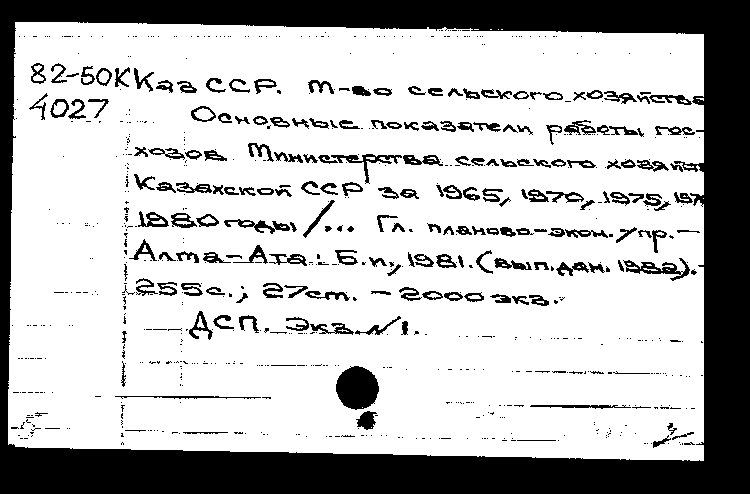 82-50К Каз ССР. М-во сельского хозяйства
4027 Основные показатели работы гос-
хозов Министерства сельского хозяйст
Казахской ССР за 1965, 1970, 1975, 197
1980 годы /... Гл. планово-экон. упр. —
Алма-Ата: Б.и., 1981. (вып. дан. 1982). -
255 с.; 27 см. — 2000 экз.
ДСП. Экз. № 1.